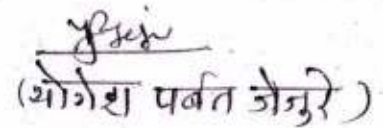 (योगेश पर्वत जेजुरे)